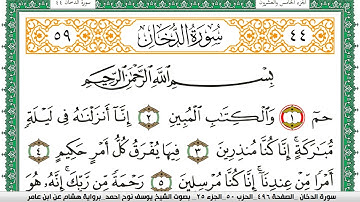 الجزء الخامس والعشرون
سورة الدخان ٤٤
٥٩ سُورَةُ الدُّخَانِ ٤٤
بِسْمِ اللَّهِ الرَّحْمَٰنِ الرَّحِيمِ
حمٓ ١ وَالْكِتَابِ الْمُبِينِ ٢ إِنَّا أَنزَلْنَاهُ فِي لَيْلَةٍ
مُّبَارَكَةٍ إِنَّا كُنَّا مُنذِرِينَ ٣ فِيهَا يُفْرَقُ كُلُّ أَمْرٍ حَكِيمٍ ٤
أَمْرًا مِّنْ عِندِنَا إِنَّا كُنَّا مُرْسِلِينَ ٥ رَحْمَةً مِّن رَّبِّكَ إِنَّهُ هُوَ
سورة الدخان _ الصفحة ٤٩٦ _ الحزب ٥٠ _ الجزء ٢٥ _ بصوت الشيخ يوسف نوح أحمد _ برواية هشام عن ابن عامر